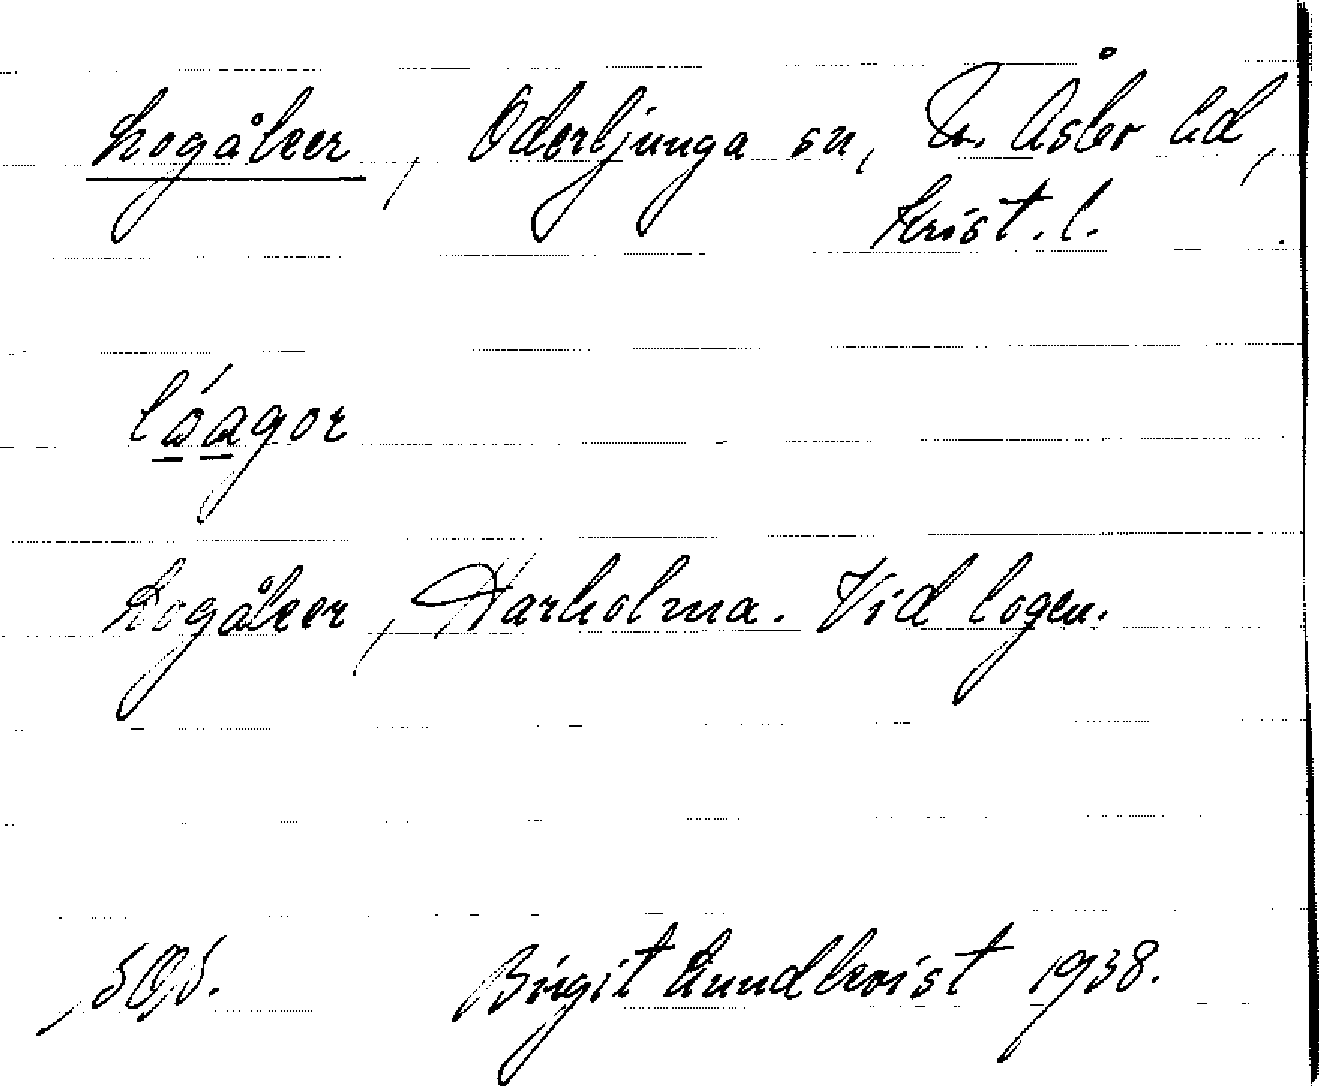 Logåker, Oderljunga sn, N. Åsbo hd,
Krist. l.
lóagor
Logåker, Harholma. Vid logen.
Birgit Lundkvist 1938.